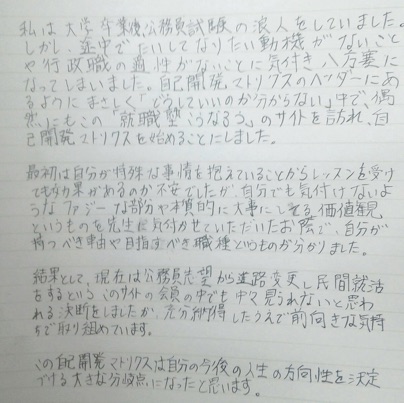 私は大学卒業後、公務員試験の浪人をしていました。
しかし、途中でたいしてなりたい動機がないこと
や行政職の適性がないことに気付き、八方塞に
なってしまいました。自己開発マトリクスのヘッダーにあ
るようにまさしく「どうしていいのか分からない」中で、偶
然にもこの「就職塾こうなろう」のサイトを訪れ、自
己開発マトリクスを始めることにしました。
最初は自分が特殊な事情を抱えていることからレッスンを受け
ても効果があるのか不安でしたが、自分でも気付けないよ
うなファジーな部分や本質的に大事にしてる価値観
というものを先生に気付かせていただいたお陰で、自分が
持つべき事由や目指すべき職種というものが分かりました。
結果として、現在は公務員志望から進路変更し民間就活
をするという、このサイトの会員の中でも中々見られないと思わ
れる決断をしましたが、充分納得したうえで前向きな気持
ちで取り組めています。
この自己開発マトリクスは自分の今後の人生の方向性を決定
づける大きな分岐点になったと思います。